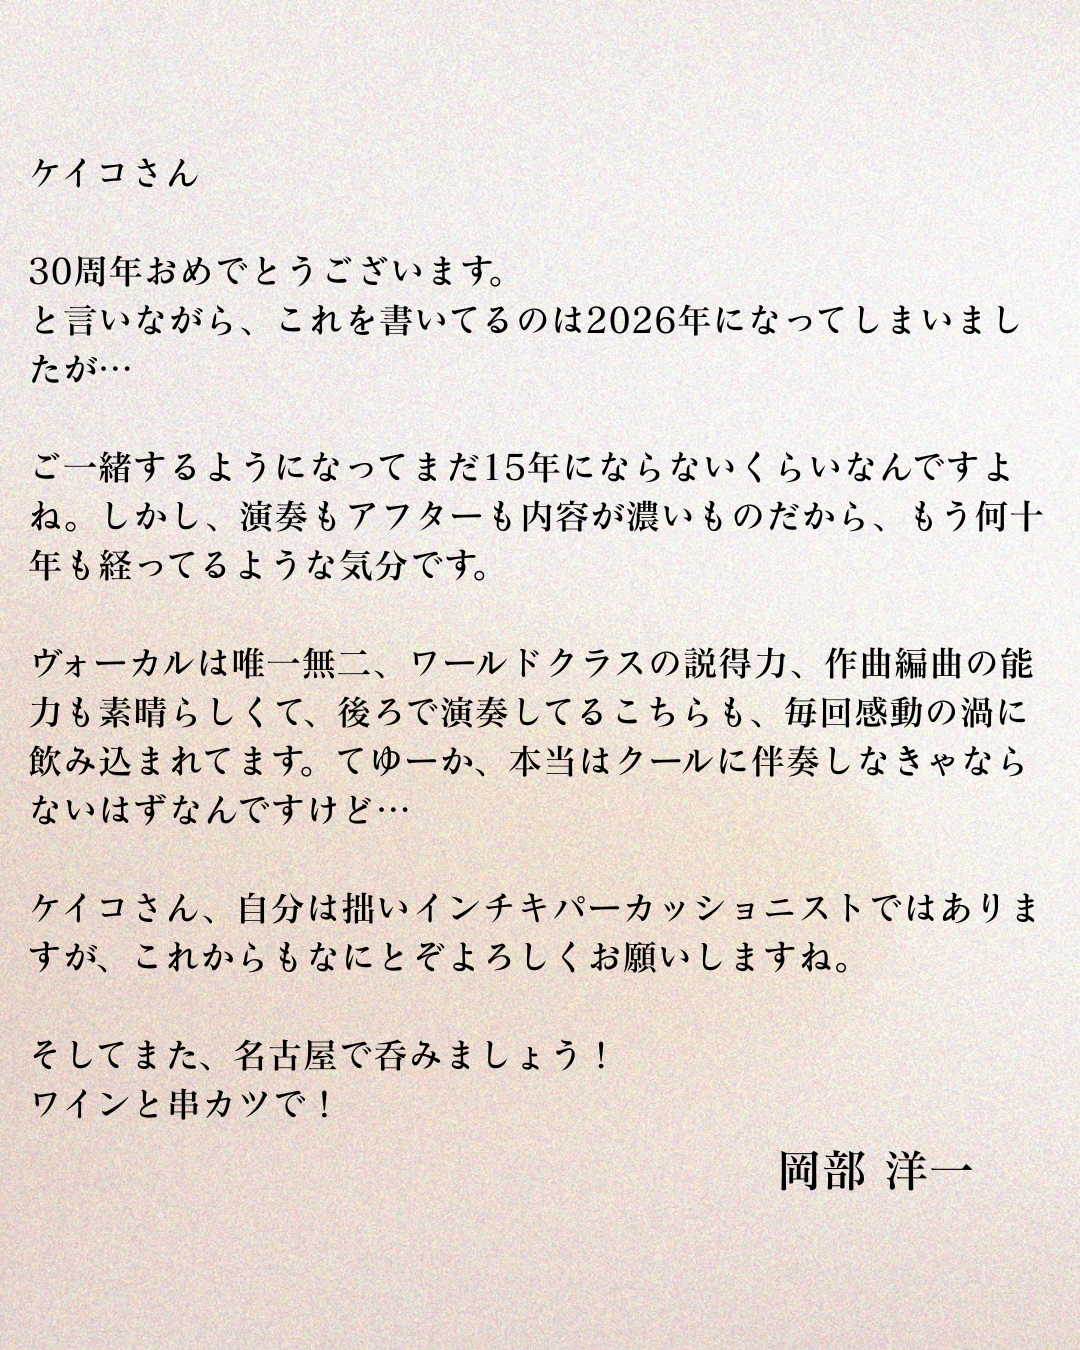 ケイコさん
30周年おめでとうございます。
と言いながら、これを書いてるのは2026年になってしまいまし
たが…
ご一緒するようになってまだ15年にならないくらいなんですよ
ね。しかし、演奏もアフターも内容が濃いものだから、もう何十
年も経ってるような気分です。
ヴォーカルは唯一無二、ワールドクラスの説得力、作曲編曲の能
力も素晴らしくて、後ろで演奏してるこちらも、毎回感動の渦に
飲み込まれてます。てゆーか、本当はクールに伴奏しなきゃなら
ないはずなんですけど…
ケイコさん、自分は拙いインチキパーカッショニストではありま
すが、これからもなにとぞよろしくお願いしますね。
そしてまた、名古屋で呑みましょう！
ワインと串カツで！
岡部 洋一